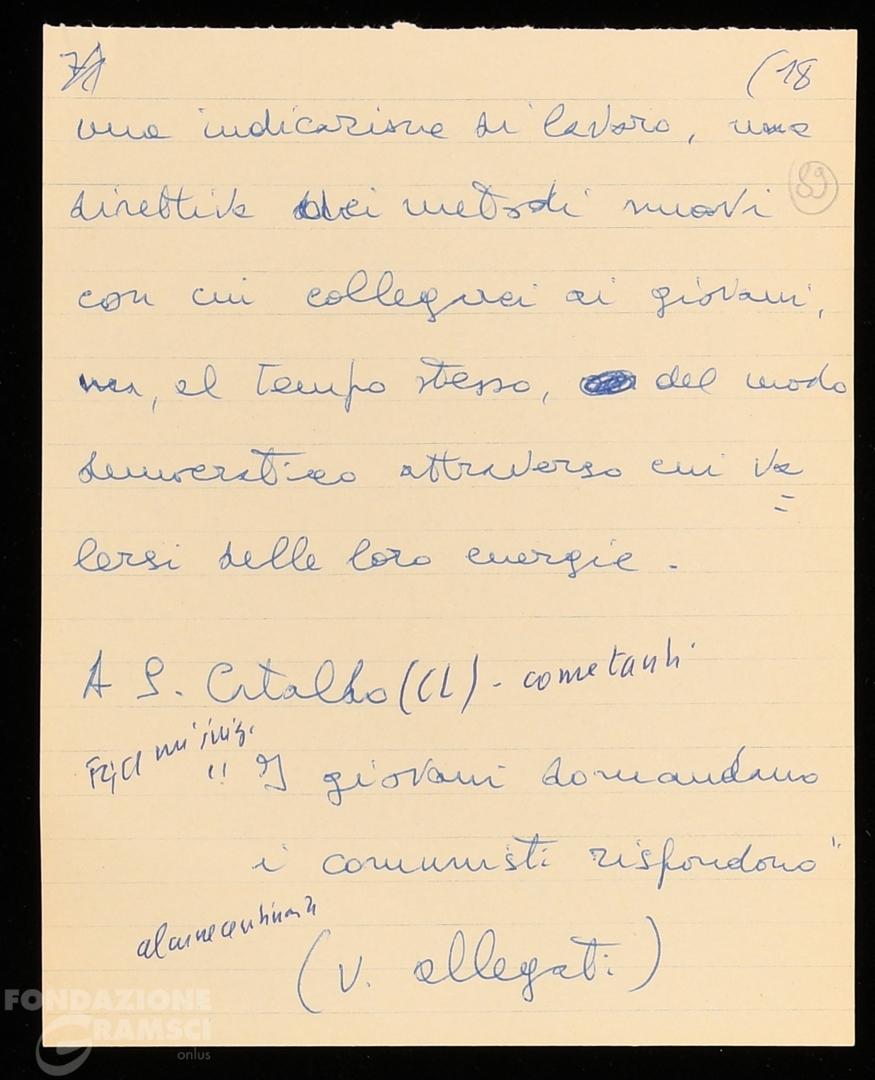 71 (18
una indicazione di lavoro, una
89
direttiva dei metodi nuovi
con cui collegarci ai giovani,
ma, al tempo stesso, del modo
democratico attraverso cui va=
lersi delle loro energie.
A S. Cataldo (CL) - come tanti
FGCI
" I giovani domandano
i comunisti rispondono"
alcune centinaia
(V. allegati)
FONDAZIONE
GRAMSCI
onlus